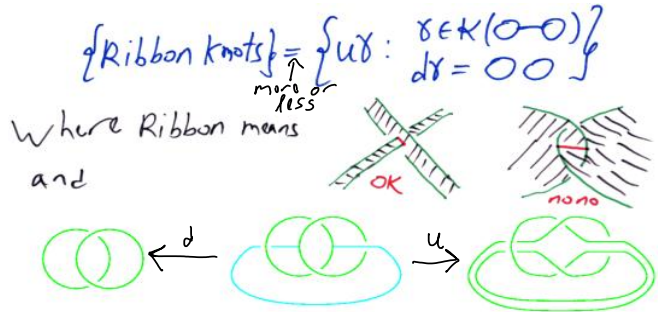 {Ribbon knots} = {uγ : γ∈K(O–O)
dγ = O O}
more or
less
Where Ribbon means
and
OK
no no
d
u